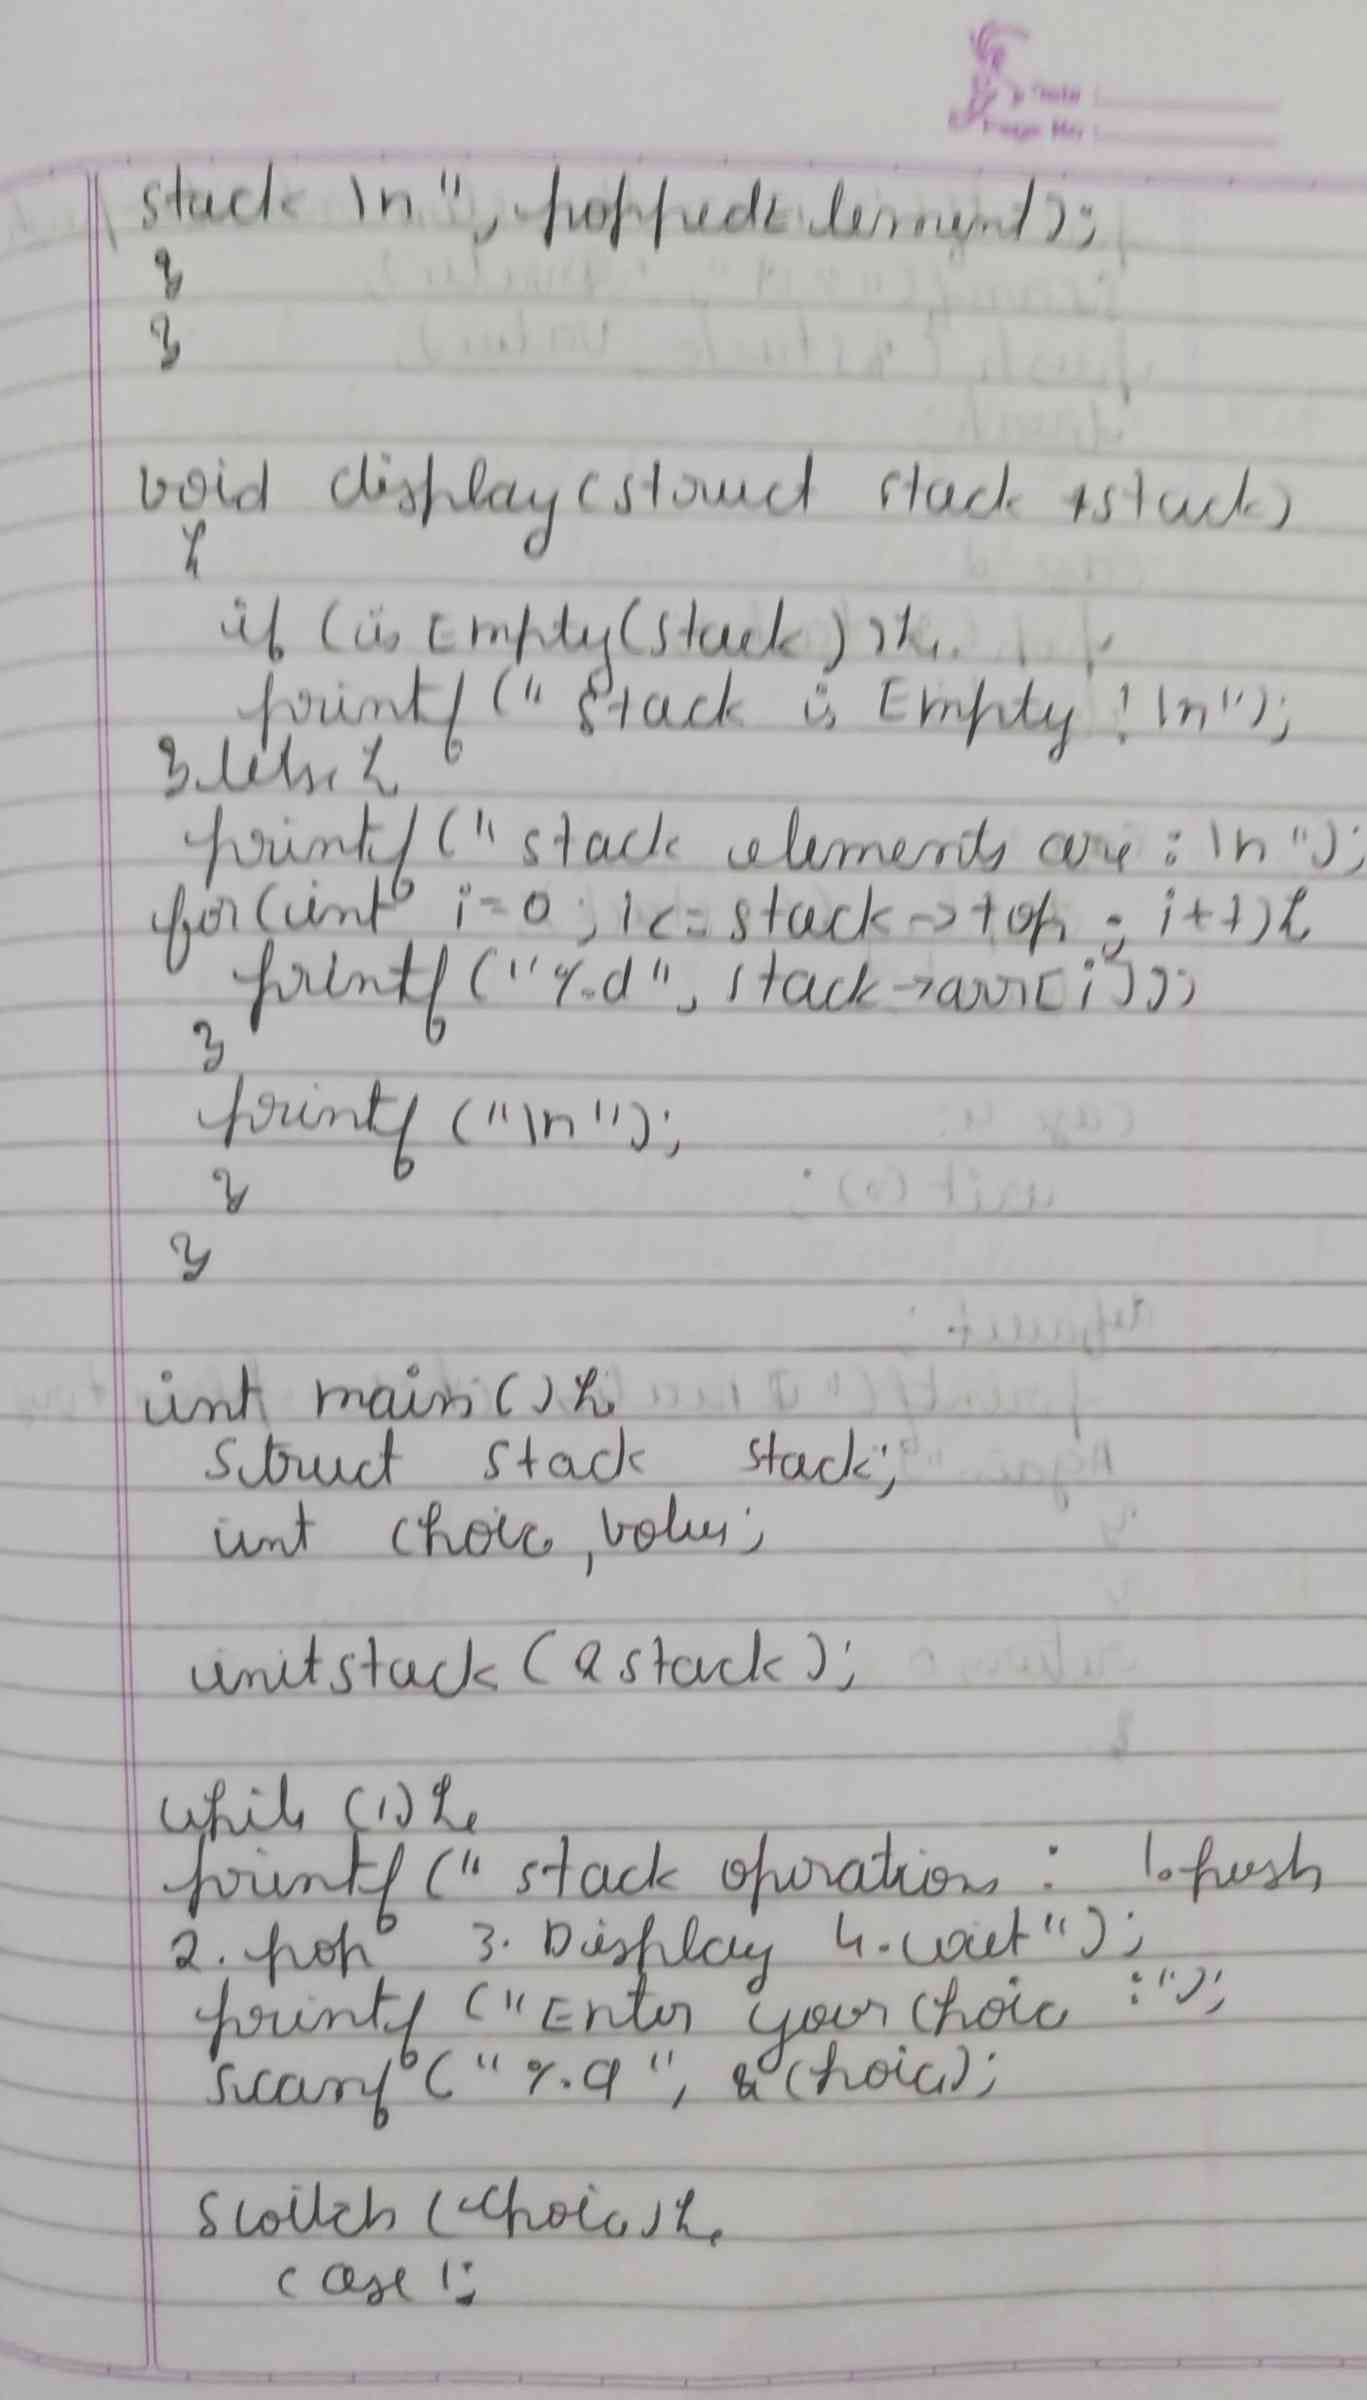 Date :
Page No :
stack \n", poppedElement);
}
}
void display(struct stack *stack)
{
if (is Empty(stack)){
printf (" Stack is Empty ! \n");
}else{
printf (" stack elements are : \n");
for(int i=0 ; i<= stack->top ; i++){
printf ("%d", stack->arr[i]);
}
printf ("\n");
}
}
int main(){
struct stack stack;
int choice, value;
initstack (&stack);
while (1){
printf (" stack operations : 1.push
2. pop 3. Display 4. exit");
printf ("Enter your choice :");
scanf ("%d", &choice);
switch (choice){
case 1: